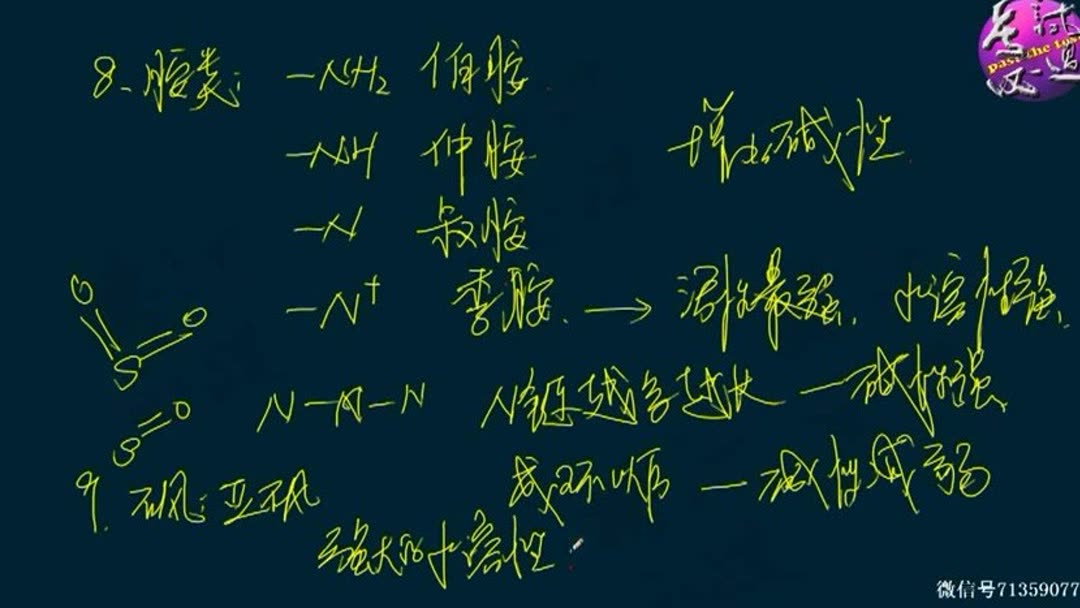 8、胺类: -NH₂ 伯胺
-NH 仲胺 增加碱性
-N 叔胺
-N⁺ 季胺. → 活性最强. 水溶性强.
O O
S
N-N-N N链越多越长 — 碱性强
S=O
成环以后 — 碱性减弱
9. 砜; 亚砜
强大的水溶性
past the test
微信号71359077